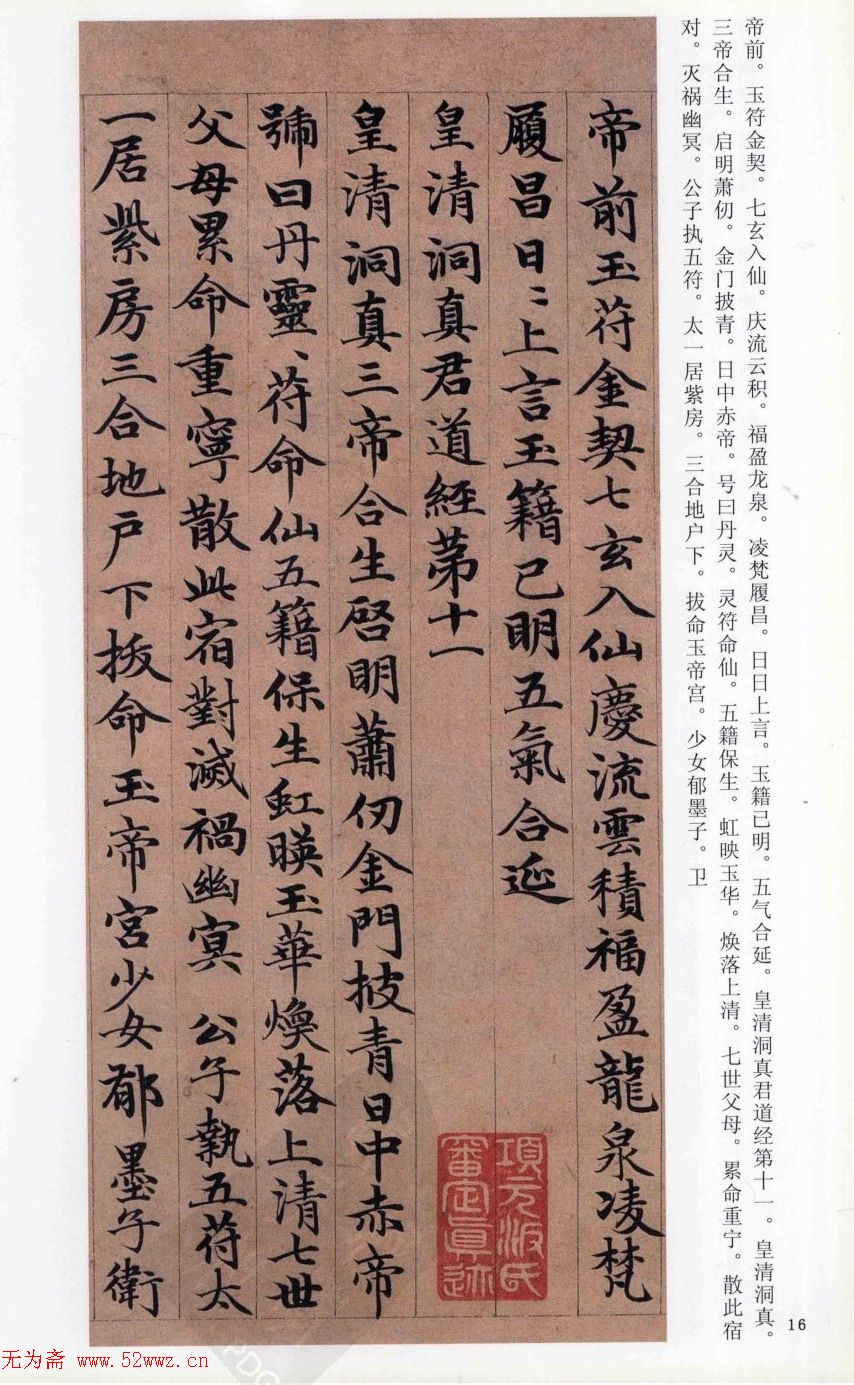 帝前。玉符金契。七玄入仙。庆流云积。福盈龙泉。凌梵履昌。日日上言。玉籍已明。五气合延。皇清洞真君道经第十一。皇清洞真。
三帝合生。启明萧仞。金门披青。日中赤帝。号曰丹灵。灵符命仙。五籍保生。虹映玉华。焕落上清。七世父母。累命重宁。散此宿
对。灭祸幽冥。公子执五符。太一居紫房。三合地户下。拔命玉帝宫。少女郁墨子。卫
帝前玉苻金契七玄入仙慶流雲積福盈龍泉凌梵
履昌日〻上言玉籍已明五氣合延
皇清洞真君道經苐十一
皇清洞真三帝合生啓明蕭仞金門披青日中赤帝
號曰丹靈〻苻命仙五籍保生虹暎玉華煥落上清七世
父母累命重寧散此宿對滅禍幽冥 公子執五苻太
一居紫房三合地户下拔命玉帝宮少女郁墨子衛
項元汴氏
審定真迹
16
无为斋 www.52wwz.cn